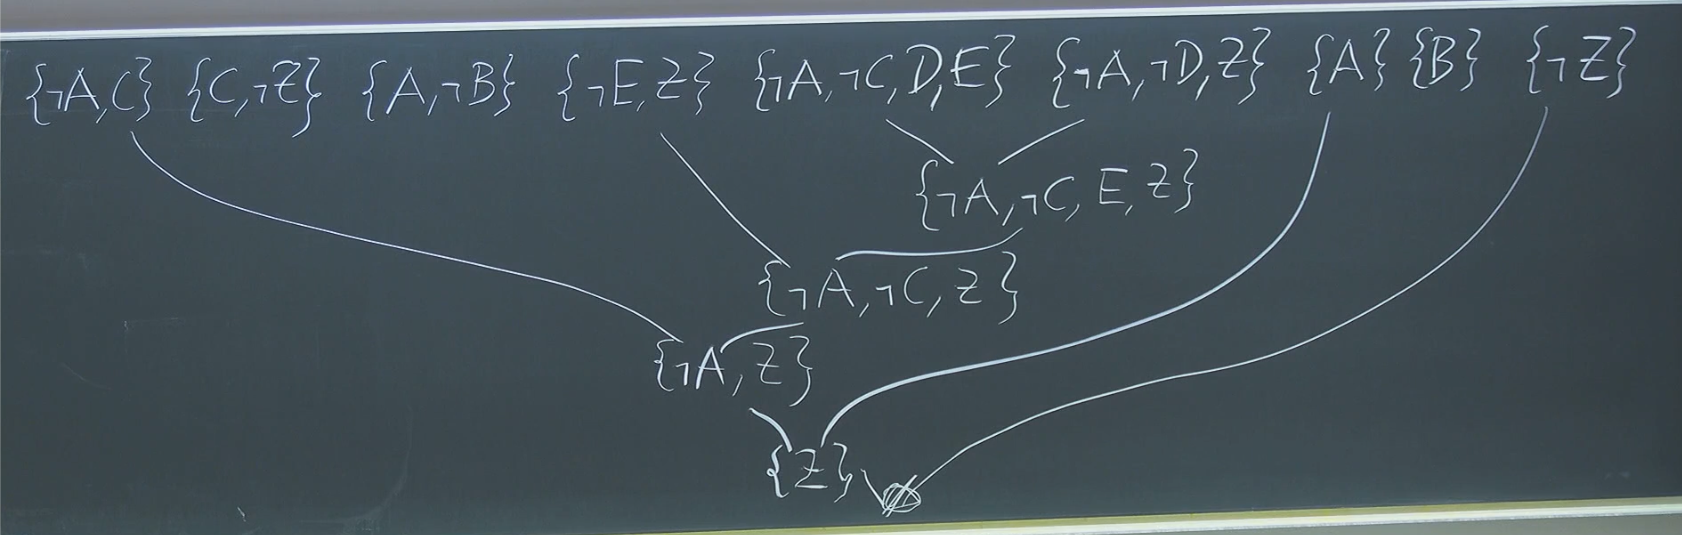 {¬A,C} {C,¬Z} {A,¬B} {¬E,Z} {¬A,¬C,D,E} {¬A,¬D,Z} {A} {B} {¬Z}
{¬A,¬C,E,Z}
{¬A,¬C,Z}
{¬A,Z}
{Z}
∅